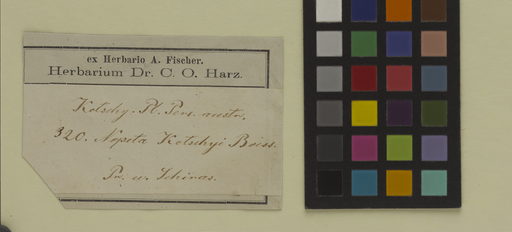 ex Herbario A. Fischer.
Herbarium Dr. C. O. Harz.
Kotschy. Pl. Pers. austr.
320. Nepeta Kotschyi Boiss.
Pr. u. Schiras.